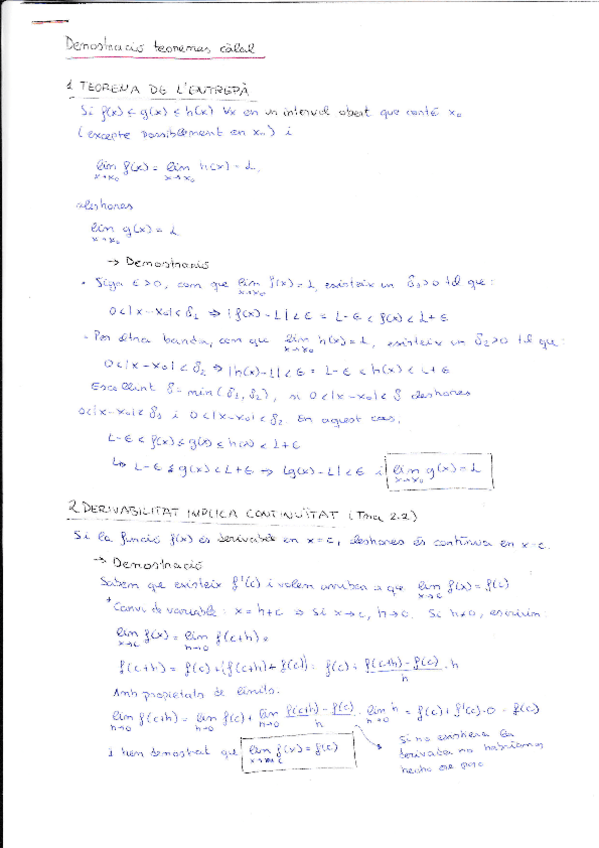 Demostració teoremas càlcul
1 TEOREMA DE L'ENTREPÀ
Si f(x) ≤ g(x) ≤ h(x) ∀x en un interval obert que conté x₀
(excepte possiblement en x₀) i
lim f(x) = lim h(x) = L,
x→x₀ x→x₀
aleshores
lim g(x) = L
x→x₀
→ Demostració
· Siga ε>0, com que lim f(x) = L, existeix un δ₁>0 tal que:
x→x₀
0<|x-x₀|<δ₁ ⇒ |f(x)-L|<ε = L-ε < f(x) < L+ε
· Per altra banda, com que lim h(x)=L, existeix un δ₂>0 tal que:
x→x₀
0<|x-x₀|<δ₂ ⇒ |h(x)-L|<ε = L-ε < h(x) < L+ε
Escollint δ=min(δ₁,δ₂), si 0<|x-x₀|<δ aleshores
0<|x-x₀|<δ₁ i 0<|x-x₀|<δ₂. En aquest cas,
L-ε < f(x) ≤ g(x) ≤ h(x) < L+ε
↳ L-ε < g(x) < L+ε → |g(x)-L|<ε i lim g(x) = L
x→x₀
2 DERIVABILITAT IMPLICA CONTINUÏTAT (Tma 2.2)
Si la funció f(x) és derivable en x=c, aleshores és contínua en x=c.
→ Demostració
Sabem que existeix f'(c) i volem arribar a que lim f(x) = f(c)
x→c
* Canvi de variable: x = h+c ⇒ si x→c, h→0. Si h≠0, escrivim:
lim f(x) = lim f(c+h) =
x→c h→0
f(c+h) = f(c) + (f(c+h) + f(c)) = f(c) + f(c+h) - f(c) · h
h
Amb propietats de límits.
lim f(c+h) = lim f(c) + lim f(c+h) - f(c) · lim h = f(c) + f'(c)·0 = f(c)
h→0 h→0 h→0 h h→0
i hem demostrat que lim f(x) = f(c)
x→c
si no existiera la
derivada no habríamos
hecho ese paso